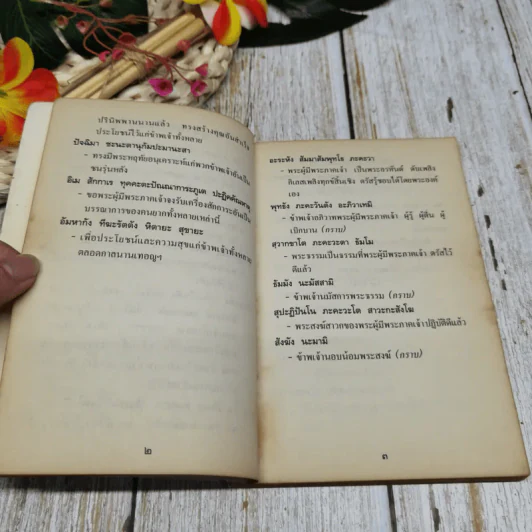 ปรินิพพานนานแล้ว ทรงสร้างคุณอันสำเร็จ
ประโยชน์ไว้แก่ข้าพเจ้าทั้งหลาย
ปัจฉิมา ชะนะตานุกัมปะมานะสา
- ทรงมีพระหฤทัยอนุเคราะห์แก่พวกข้าพเจ้าอันเป็น
ชนรุ่นหลัง
อิเม สักกาเร ทุคคะตะปัณณาการะภูเต ปะฏิคคัณหาตุ
- ขอพระผู้มีพระภาคเจ้าจงรับเครื่องสักการะอันเป็น
บรรณาการของคนยากทั้งหลายเหล่านี้
อัมหากัง ทีฆะรัตตัง หิตายะ สุขายะ
- เพื่อประโยชน์และความสุขแก่ข้าพเจ้าทั้งหลาย
ตลอดกาลนานเทอญฯ
๒
อะระหัง สัมมาสัมพุทโธ ภะคะวา
- พระผู้มีพระภาคเจ้า เป็นพระอรหันต์ ดับเพลิง
กิเลสเพลิงทุกข์สิ้นเชิง ตรัสรู้ชอบได้โดยพระองค์
เอง
พุทธัง ภะคะวันตัง อะภิวาเทมิ
- ข้าพเจ้าอภิวาทพระผู้มีพระภาคเจ้า ผู้รู้ ผู้ตื่น ผู้
เบิกบาน (กราบ)
สฺวากขาโต ภะคะวะตา ธัมโม
- พระธรรมเป็นธรรมที่พระผู้มีพระภาคเจ้า ตรัสไว้
ดีแล้ว
ธัมมัง นะมัสสามิ
- ข้าพเจ้านมัสการพระธรรม (กราบ)
สุปะฏิปันโน ภะคะวะโต สาวะกะสังโฆ
- พระสงฆ์สาวกของพระผู้มีพระภาคเจ้าปฏิบัติดีแล้ว
สังฆัง นะมามิ
- ข้าพเจ้านอบน้อมพระสงฆ์ (กราบ)
๓